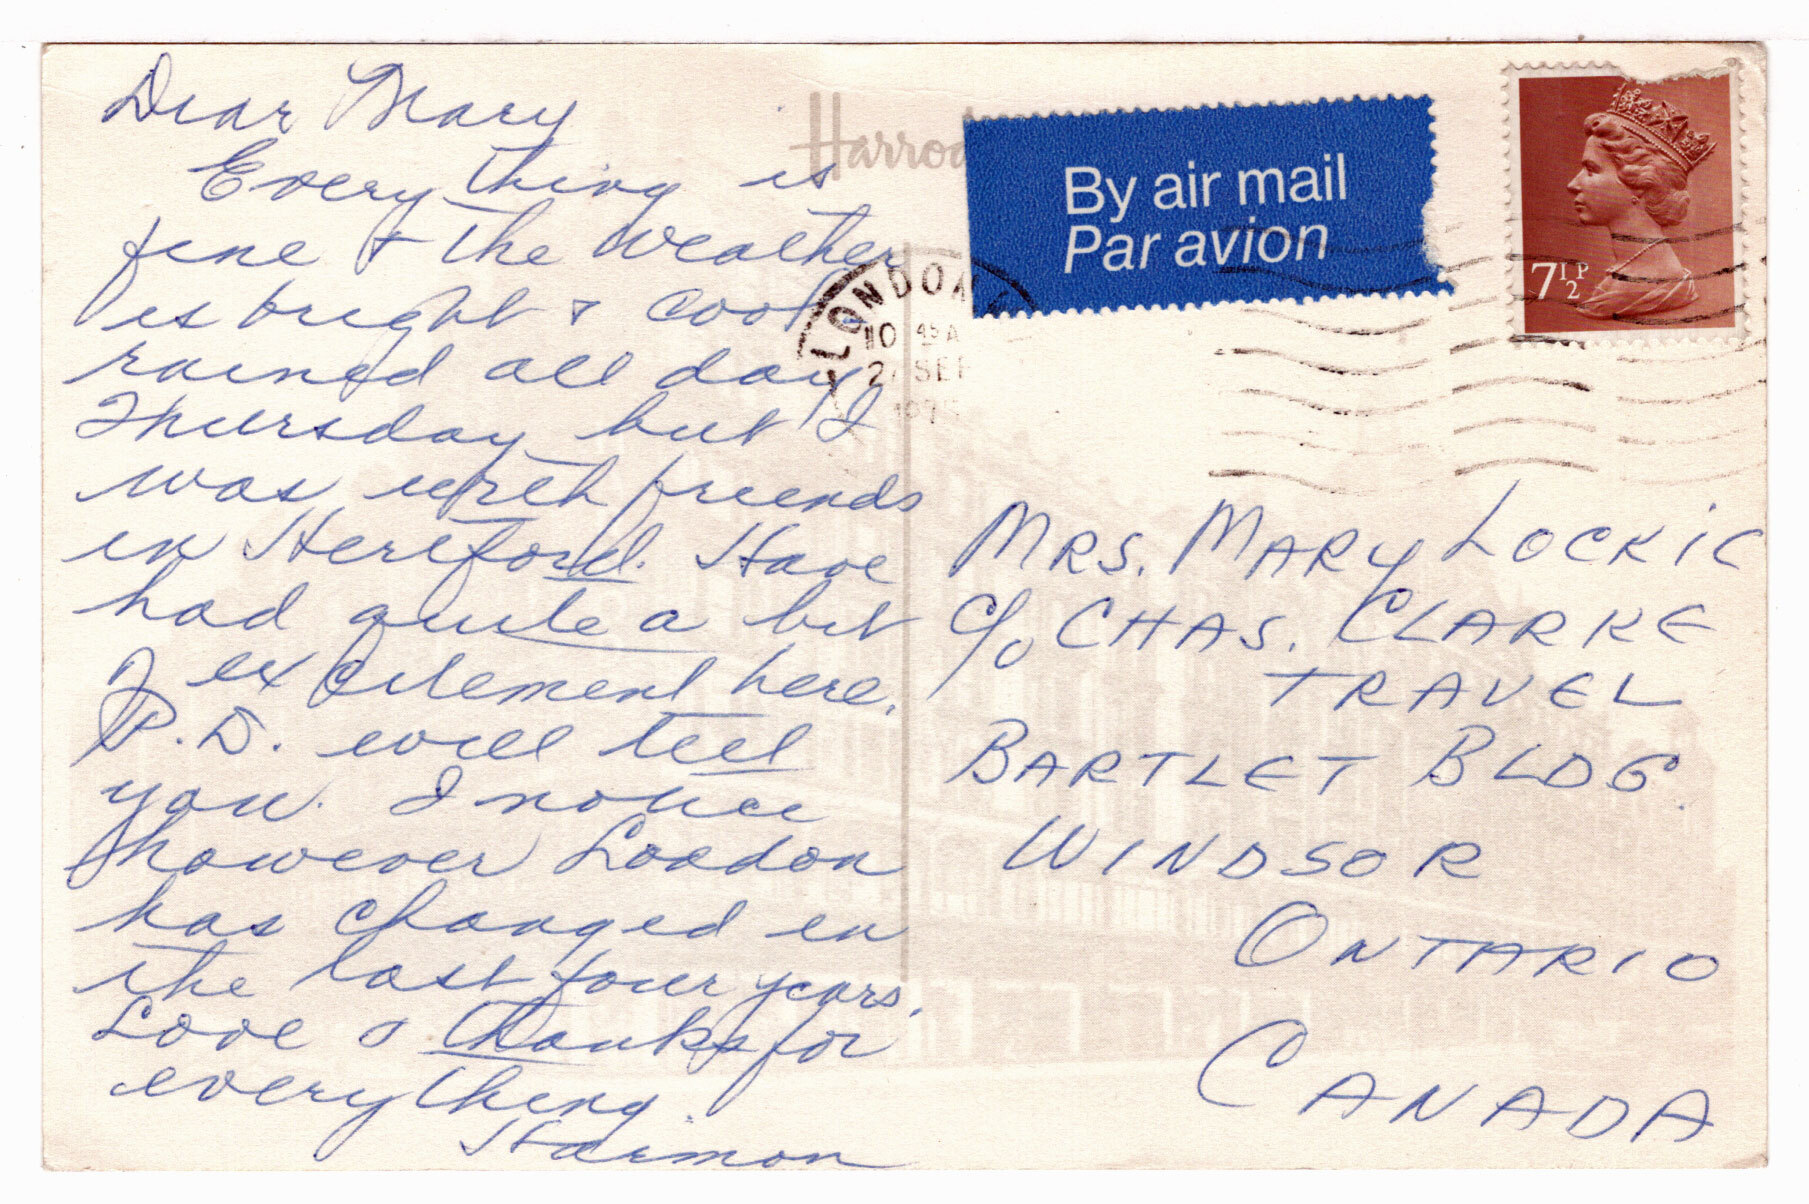 Dear Mary
Everything is
fine & the weather
is bright & cool
rained all day
Thursday but I
was with friends
in Hereford. Have
had quite a bit
of excitement here.
P.D. will tell
you. I notice
however London
has changed in
the last four years.
Love & thanks for
everything.
Harmon
Harrod
By air mail
Par avion
7½P
LONDON
45 A
SEP
MRS. MARY LOCKIE
C/O CHAS. CLARKE
TRAVEL
BARTLET BLDG.
WINDSOR
ONTARIO
CANADA